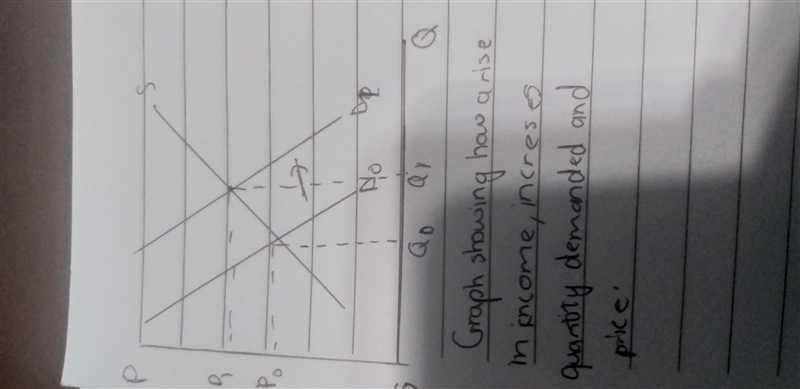 P
S
P1
P0
D1
D0
Q0
Q1
Q
Graph showing how a rise
in income, increses
quantity demanded and
price.